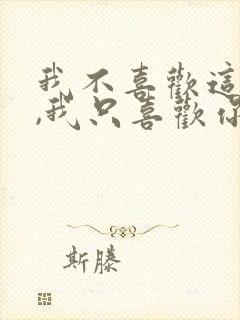 我不喜歡這
,我只喜歡你
斯滕